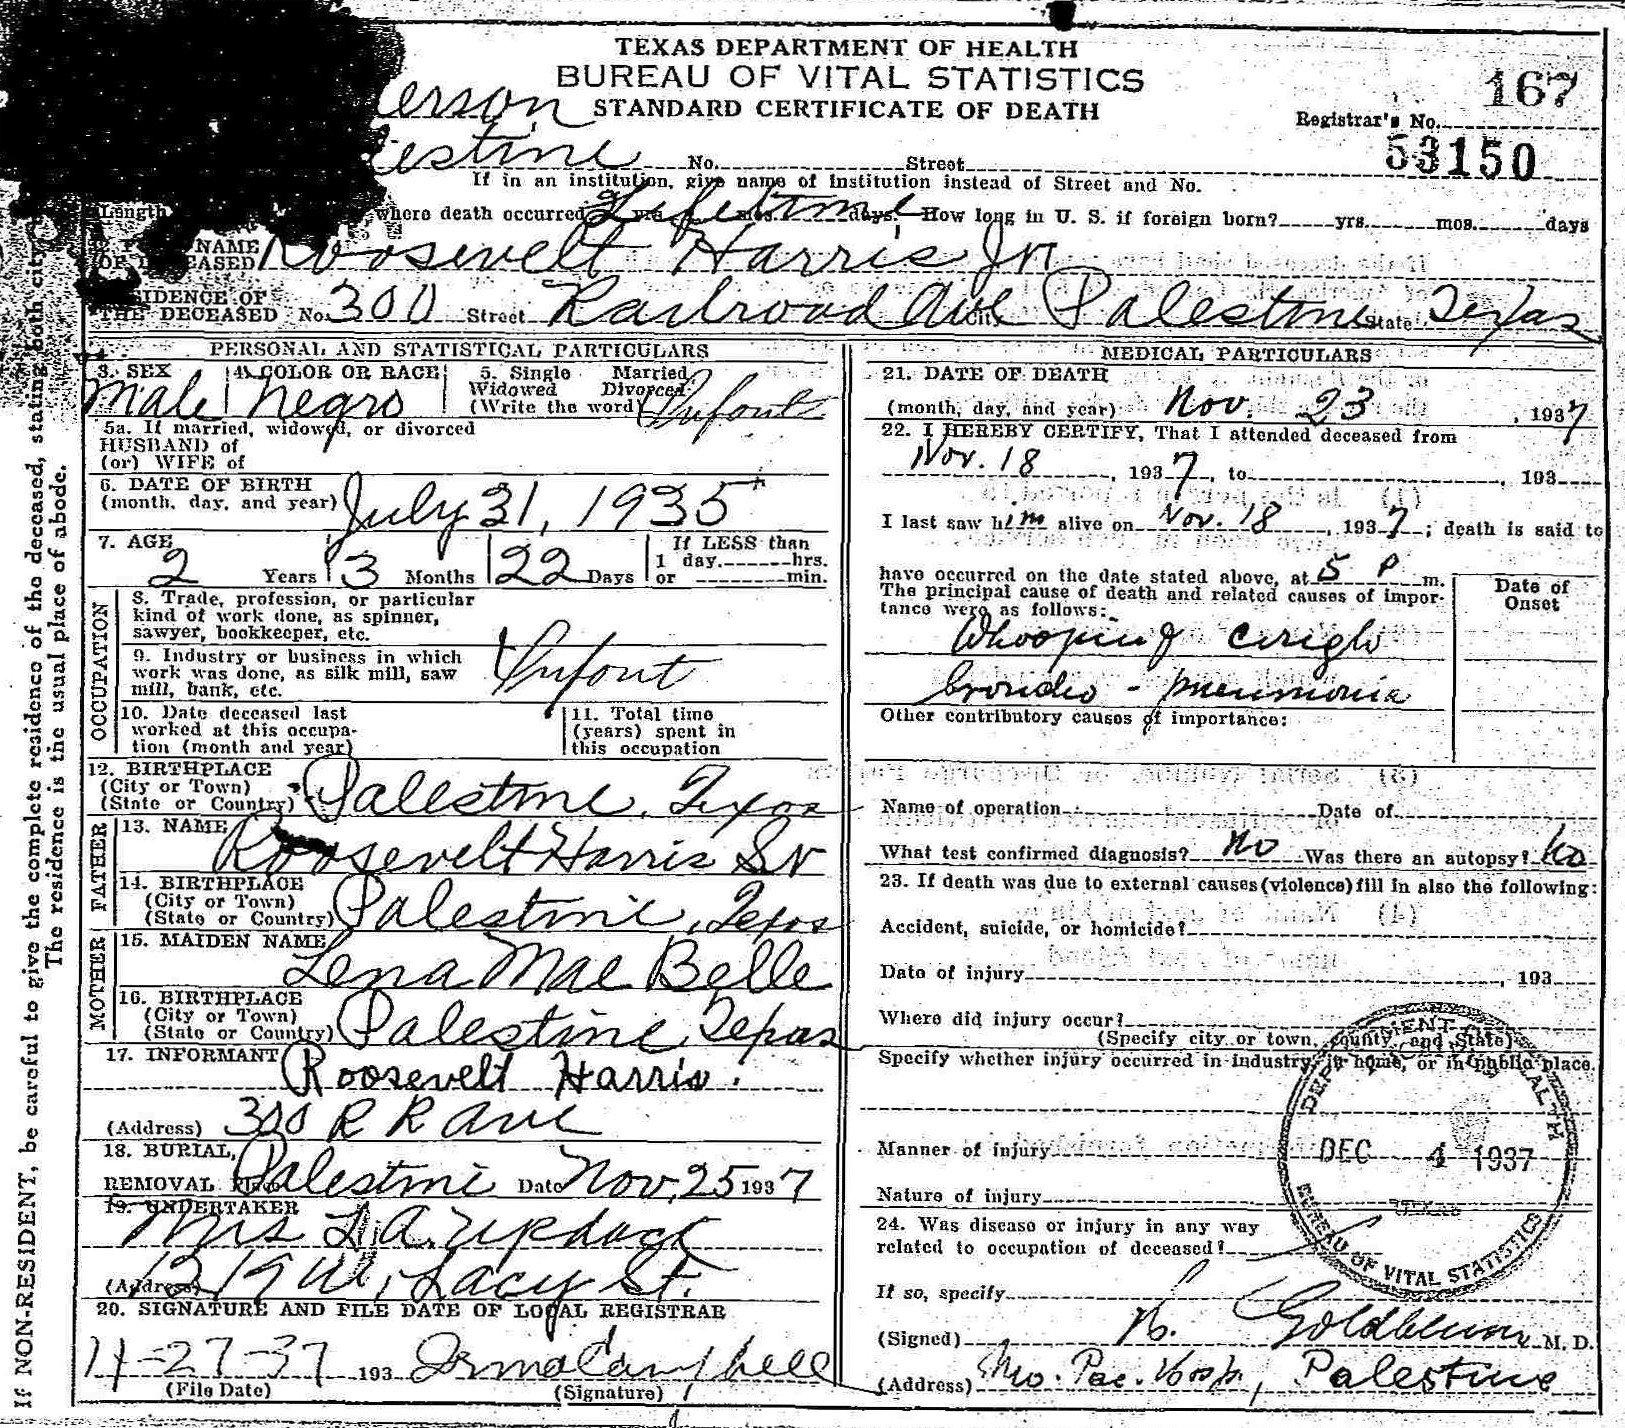 TEXAS DEPARTMENT OF HEALTH
BUREAU OF VITAL STATISTICS
STANDARD CERTIFICATE OF DEATH
167
Registrar's No.
53150
erson
lestine No. Street
If in an institution, give name of institution instead of Street and No.
Length where death occurred Lifetime yrs. mos. days. How long in U. S. if foreign born? yrs. mos. days
NAME OF DECEASED Roosevelt Harris Jr
RESIDENCE OF THE DECEASED No. 300 Street Railroad Ave City Palestine State Texas
PERSONAL AND STATISTICAL PARTICULARS
3. SEX Male
4. COLOR OR RACE Negro
5. Single Married Widowed Divorced (Write the word) Infant
5a. If married, widowed, or divorced
HUSBAND of
(or) WIFE of
6. DATE OF BIRTH
(month, day, and year) July 31, 1935
7. AGE 2 Years 3 Months 22 Days If LESS than 1 day, hrs. or min.
OCCUPATION
8. Trade, profession, or particular
kind of work done, as spinner,
sawyer, bookkeeper, etc.
9. Industry or business in which
work was done, as silk mill, saw
mill, bank, etc.
Infant
10. Date deceased last
worked at this occupa-
tion (month and year)
11. Total time
(years) spent in
this occupation
12. BIRTHPLACE
(City or Town)
(State or Country) Palestine, Texas
FATHER
13. NAME Roosevelt Harris Sr
14. BIRTHPLACE
(City or Town)
(State or Country) Palestine, Texas
MOTHER
15. MAIDEN NAME Lena Mae Belle
16. BIRTHPLACE
(City or Town)
(State or Country) Palestine, Texas
17. INFORMANT Roosevelt Harris.
(Address) 300 R R Ave
18. BURIAL,
REMOVAL Place Palestine Date Nov. 25 1937
19. UNDERTAKER
Mrs L. A.
(Address) 1219 W. Lacy St.
20. SIGNATURE AND FILE DATE OF LOCAL REGISTRAR
11-27-37 193 Irma Campbell
(File Date) (Signature)
MEDICAL PARTICULARS
21. DATE OF DEATH
(month, day, and year) Nov. 23, 1937
22. I HEREBY CERTIFY, That I attended deceased from
Nov. 18, 1937, to , 193
I last saw him alive on Nov. 18, 1937; death is said to
have occurred on the date stated above, at 5 P m.
The principal cause of death and related causes of impor-
tance were as follows:
Date of Onset
Whooping Cough
broncho - pneumonia
Other contributory causes of importance:
Name of operation Date of
What test confirmed diagnosis? No Was there an autopsy? No
23. If death was due to external causes (violence) fill in also the following:
Accident, suicide, or homicide?
Date of injury , 193
Where did injury occur?
(Specify city or town, county, and State)
Specify whether injury occurred in industry, in home, or in public place.
Manner of injury
Nature of injury
24. Was disease or injury in any way
related to occupation of deceased?
If so, specify
(Signed) Goldblum M. D.
(Address) Mo. Pac. Hosp, Palestine
DEPARTMENT OF HEALTH
DEC 4 1937
TEXAS
BUREAU OF VITAL STATISTICS
If NON-RESIDENT, be careful to give the complete residence of the deceased, stating both city
The residence is the usual place of abode.